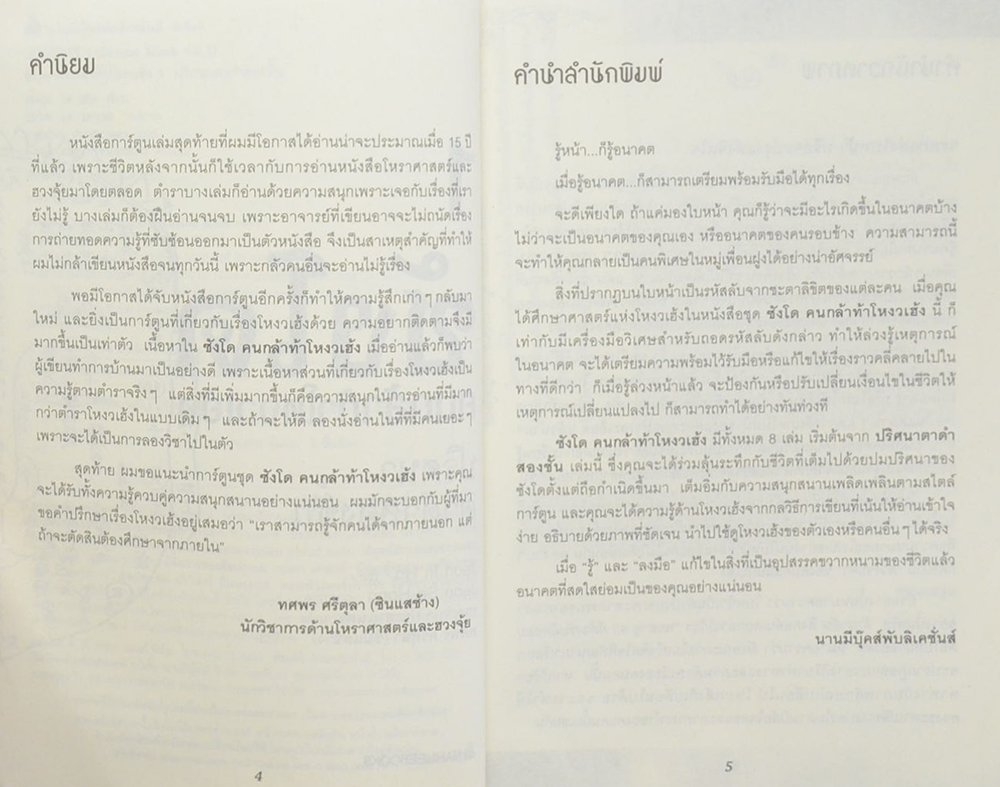 คำนิยม
หนังสือการ์ตูนเล่มสุดท้ายที่ผมมีโอกาสได้อ่านน่าจะประมาณเมื่อ 15 ปี
ที่แล้ว เพราะชีวิตหลังจากนั้นก็ใช้เวลากับการอ่านหนังสือโหราศาสตร์และ
ฮวงจุ้ยมาโดยตลอด ตำราบางเล่มก็อ่านด้วยความสนุกเพราะเจอกับเรื่องที่เรา
ยังไม่รู้ บางเล่มก็ต้องฝืนอ่านจนจบ เพราะอาจารย์ที่เขียนอาจจะไม่ถนัดเรื่อง
การถ่ายทอดความรู้ที่ซับซ้อนออกมาเป็นตัวหนังสือ จึงเป็นสาเหตุสำคัญที่ทำให้
ผมไม่กล้าเขียนหนังสือจนทุกวันนี้ เพราะกลัวคนอื่นจะอ่านไม่รู้เรื่อง
พอมีโอกาสได้จับหนังสือการ์ตูนอีกครั้งก็ทำให้ความรู้สึกเก่าๆ กลับมา
ใหม่ และยิ่งเป็นการ์ตูนที่เกี่ยวกับเรื่องโหงวเฮ้งด้วย ความอยากติดตามจึงมี
มากขึ้นเป็นเท่าตัว เนื้อหาใน ซังโด คนกล้าท้าโหงวเฮ้ง เมื่ออ่านแล้วก็พบว่า
ผู้เขียนทำการบ้านมาเป็นอย่างดี เพราะเนื้อหาส่วนที่เกี่ยวกับเรื่องโหงวเฮ้งเป็น
ความรู้ตามตำราจริงๆ แต่สิ่งที่มีเพิ่มมากขึ้นก็คือความสนุกในการอ่านที่มีมาก
กว่าตำราโหงวเฮ้งในแบบเดิมๆ และถ้าจะให้ดี ลองนั่งอ่านในที่ที่มีคนเยอะๆ
เพราะจะได้เป็นการลองวิชาไปในตัว
สุดท้าย ผมขอแนะนำการ์ตูนชุด ซังโด คนกล้าท้าโหงวเฮ้ง เพราะคุณ
จะได้รับทั้งความรู้ควบคู่ความสนุกสนานอย่างแน่นอน ผมมักจะบอกกับผู้ที่มา
ขอคำปรึกษาเรื่องโหงวเฮ้งอยู่เสมอว่า "เราสามารถรู้จักคนได้จากภายนอก แต่
ถ้าจะตัดสินต้องศึกษาจากภายใน"
ทศพร ศรีตุลา (ซินแสช้าง)
นักวิชาการด้านโหราศาสตร์และฮวงจุ้ย
4
คำนำสำนักพิมพ์
รู้หน้า...ก็รู้อนาคต
เมื่อรู้อนาคต...ก็สามารถเตรียมพร้อมรับมือได้ทุกเรื่อง
จะดีเพียงใด ถ้าแค่มองใบหน้า คุณก็รู้ว่าจะมีอะไรเกิดขึ้นในอนาคตบ้าง
ไม่ว่าจะเป็นอนาคตของคุณเอง หรืออนาคตของคนรอบข้าง ความสามารถนี้
จะทำให้คุณกลายเป็นคนพิเศษในหมู่เพื่อนฝูงได้อย่างน่าอัศจรรย์
สิ่งที่ปรากฏบนใบหน้าเป็นรหัสลับจากชะตาลิขิตของแต่ละคน เมื่อคุณ
ได้ศึกษาศาสตร์แห่งโหงวเฮ้งในหนังสือชุด ซังโด คนกล้าท้าโหงวเฮ้ง นี้ ก็
เท่ากับมีเครื่องมือวิเศษสำหรับถอดรหัสลับดังกล่าว ทำให้ล่วงรู้เหตุการณ์
ในอนาคต จะได้เตรียมความพร้อมไว้รับมือหรือแก้ไขให้เรื่องราวคลี่คลายไปใน
ทางที่ดีกว่า ก็เมื่อรู้ล่วงหน้าแล้ว จะป้องกันหรือปรับเปลี่ยนเงื่อนไขในชีวิตให้
เหตุการณ์เปลี่ยนแปลงไป ก็สามารถทำได้อย่างทันท่วงที
ซังโด คนกล้าท้าโหงวเฮ้ง มีทั้งหมด 8 เล่ม เริ่มต้นจาก ปริศนาตาดำ
สองชั้น เล่มนี้ ซึ่งคุณจะได้ร่วมลุ้นระทึกกับชีวิตที่เต็มไปด้วยปมปริศนาของ
ซังโดตั้งแต่ถือกำเนิดขึ้นมา เต็มอิ่มกับความสนุกสนานเพลิดเพลินตามสไตล์
การ์ตูน และคุณจะได้ความรู้ด้านโหงวเฮ้งจากกลวิธีการเขียนที่เน้นให้อ่านเข้าใจ
ง่าย อธิบายด้วยภาพที่ชัดเจน นำไปใช้ดูโหงวเฮ้งของตัวเองหรือคนอื่นๆ ได้จริง
เมื่อ "รู้" และ "ลงมือ" แก้ไขในสิ่งที่เป็นอุปสรรคขวากหนามของชีวิตแล้ว
อนาคตที่สดใสย่อมเป็นของคุณอย่างแน่นอน
นานมีบุ๊คส์พับลิเคชั่นส์
5